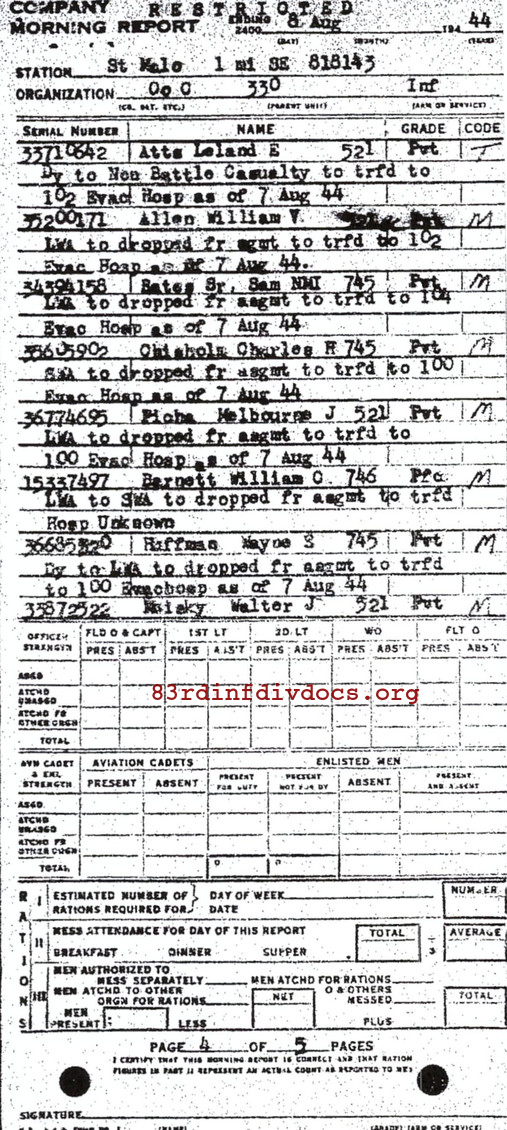 COMPANY RESTRICTED
MORNING REPORT ENDING 2400 8 Aug 194 44
(DAY) (MONTH) (YEAR)
STATION St Malo 1 mi SE 818143
ORGANIZATION Co C 330 Inf
(CO. BAT. ETC.) (PARENT UNIT) (ARM OR SERVICE)
SERIAL NUMBER NAME GRADE CODE
33710642 Atts Leland E 521 Pvt T
Dy to Non Battle Casualty to trfd to
102 Evac Hosp as of 7 Aug 44
35200171 Allen William V Pvt M
LWA to dropped fr asgmt to trfd to 102
Evac Hosp as of 7 Aug 44.
34394158 Bates Sr, Sam NMI 745 Pvt M
LWA to dropped fr asgmt to trfd to 104
Evac Hosp as of 7 Aug 44
35605902 Chisholm Charles H 745 Pvt M
SWA to dropped fr asgmt to trfd to 100
Evac Hosp as of 7 Aug 44
36774695 Picha Melbourne J 521 Pvt M
LWA to dropped fr asgmt to trfd to
100 Evac Hosp as of 7 Aug 44
15337497 Barnett William C 746 Pfc M
LWA to SWA to dropped fr asgmt to trfd
Hosp Unknown
36685320 Huffman Wayne S 745 Pvt M
Dy to LWA to dropped fr asgmt to trfd
to 100 Evachosp as of 7 Aug 44
35872522 Walter J 521 Pvt M
OFFICER STRENGTH FLD O & CAPT 1ST LT 2D LT WO FLT O
PRES ABS'T PRES ABS'T PRES ABS'T PRES ABS'T PRES ABS'T
ASGD
ATCHD UNASGD
ATCHD FR OTHER ORGN
TOTAL
83rdinfdivdocs.org
AVN CADET & ENL STRENGTH AVIATION CADETS ENLISTED MEN
PRESENT ABSENT PRESENT FOR DUTY PRESENT NOT FOR DY ABSENT PRESENT AND ABSENT
ASGD
ATCHD UNASGD
ATCHD FR OTHER ORGN
TOTAL
RATIONS
I ESTIMATED NUMBER OF RATIONS REQUIRED FOR DAY OF WEEK DATE NUMBER
II MESS ATTENDANCE FOR DAY OF THIS REPORT TOTAL ÷ 3 AVERAGE
BREAKFAST DINNER SUPPER
III MEN AUTHORIZED TO MESS SEPARATELY MEN ATCHD FOR RATIONS
MEN ATCHD TO OTHER ORGN FOR RATIONS NET O & OTHERS MESSED TOTAL
MEN PRESENT LESS PLUS
PAGE 4 OF 5 PAGES
I CERTIFY THAT THIS MORNING REPORT IS CORRECT AND THAT RATION
FIGURES IN PART II REPRESENT AN ACTUAL COUNT AS REPORTED TO ME
SIGNATURE
(NAME) (GRADE) (ARM OR SERVICE)